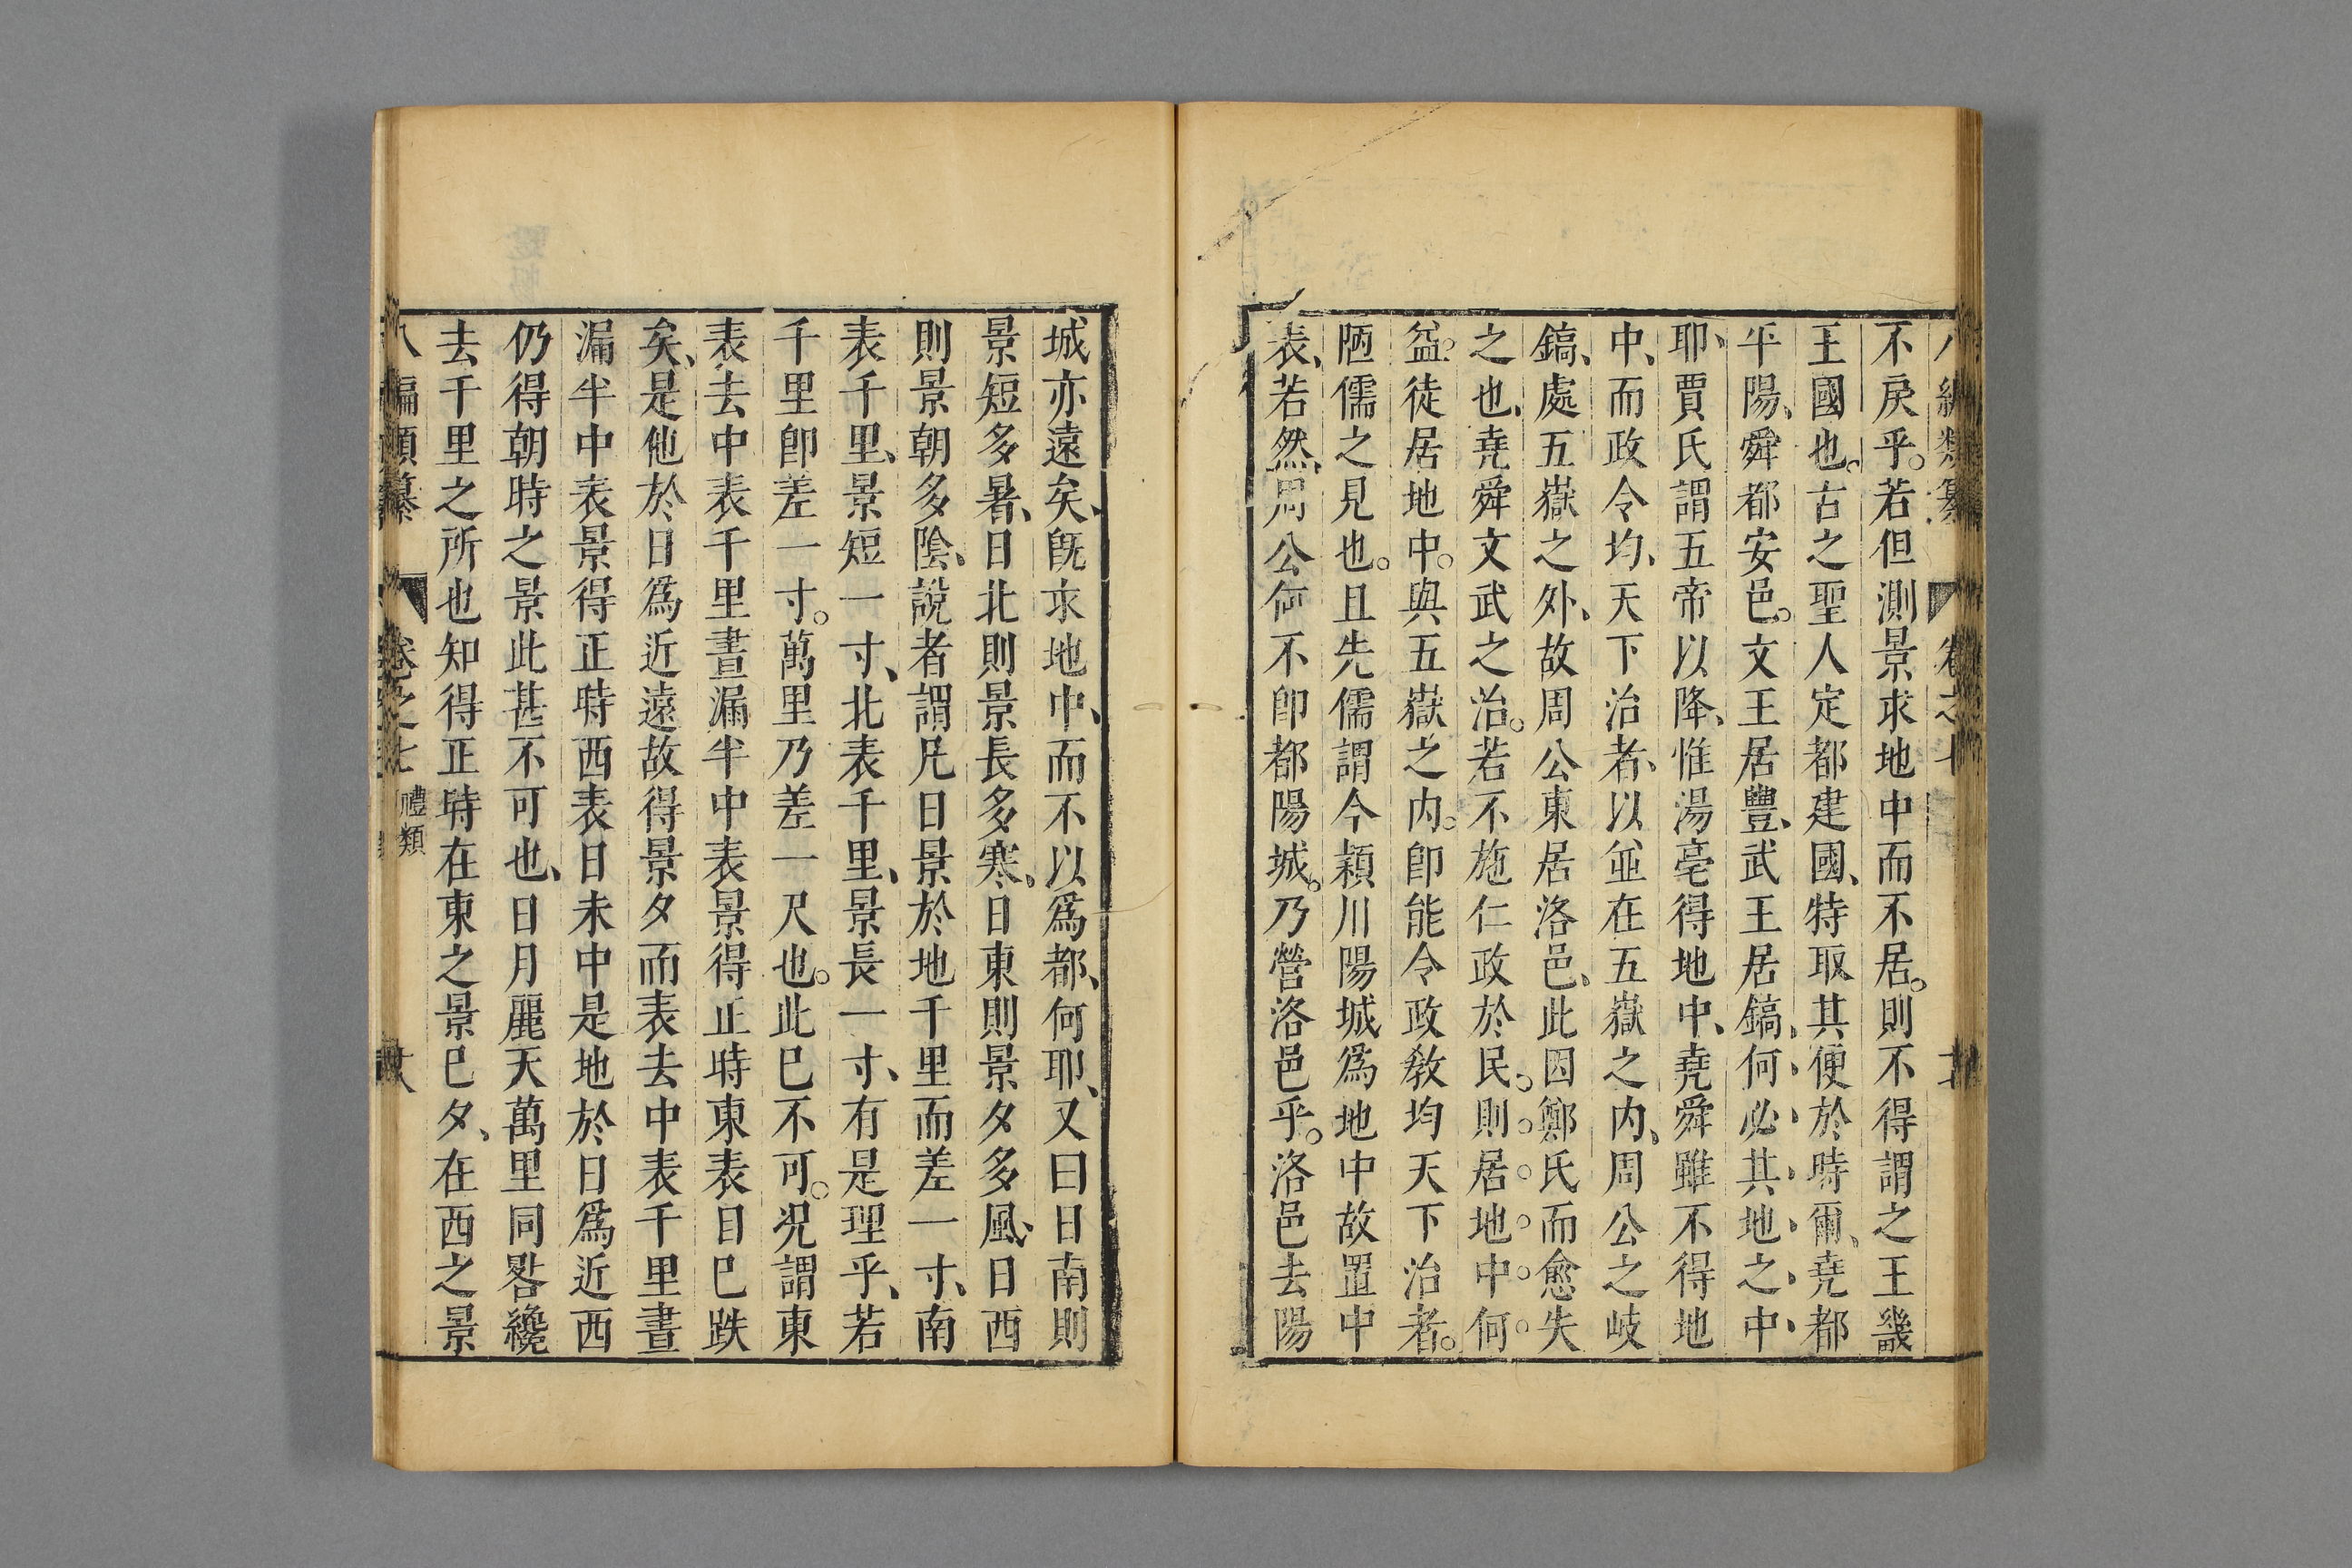 不戾乎。若但測景求地中而不居。則不得謂之王畿
王國也。古之聖人定都建國、特取其便於時爾、堯都
平陽、舜都安邑。文王居豐、武王居鎬、何必其地之中、
耶、賈氏謂五帝以降、惟湯亳得地中、堯舜雖不得地
中、而政令均、天下治者、以並在五嶽之内、周公之岐
鎬、處五嶽之外、故周公東居洛邑、此因鄭氏而愈失
之也、堯舜文武之治。若不施仁政於民。則居地中何
益。徒居地中。與五嶽之内。卽能令政教均天下治者。
陋儒之見也。且先儒謂今穎川陽城爲地中故置中
表、若然、周公何不卽都陽城。乃營洛邑乎。洛邑去陽
城亦遠矣、旣求地中、而不以爲都、何耶、又曰日南則
景短多暑、日北則景長多寒、日東則景夕多風、日西
則景朝多陰、說者謂凡日景於地千里而差一寸、南
表千里、景短一寸、北表千里、景長一寸、有是理乎、若
千里卽差一寸。萬里乃差一尺也。此巳不可。况謂東
表去中表千里晝漏半中表景得正時東表日巳跌
矣、是他於日爲近遠故得景夕而表去中表千里晝
漏半中表景得正時西表日未中是地於日爲近西
仍得朝時之景此甚不可也、日月麗天萬里同晷纔
去千里之所也知得正時在東之景巳夕、在西之景
八編類纂
卷之七
禮類